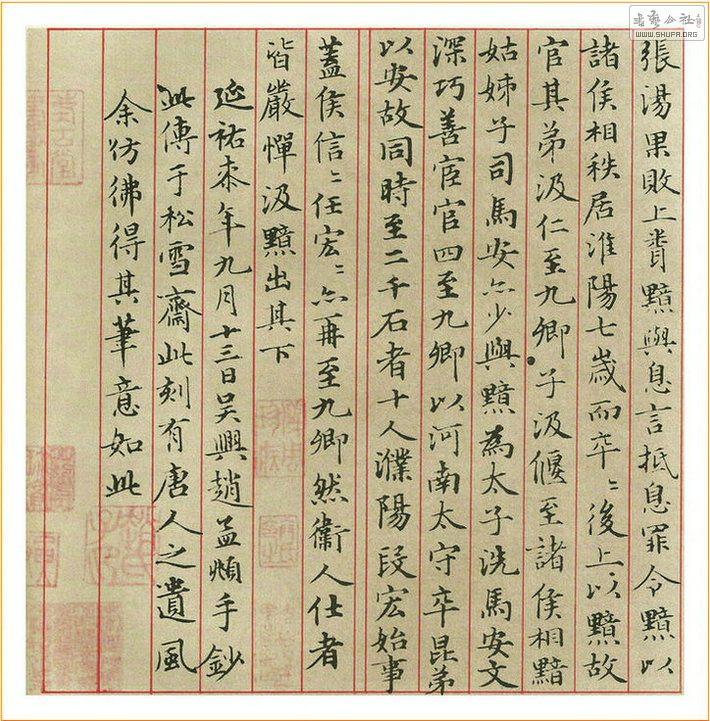 張湯果敗上聞黯與息言抵息罪令黯以
諸侯相秩居淮陽七歲而卒〻後上以黯故
官其弟汲仁至九卿子汲偃至諸侯相黯
姑姊子司馬安亦少與黯為太子洗馬安文
深巧善宦官四至九卿以河南太守卒昆弟
以安故同時至二千石者十人濮陽段宏始事
蓋侯信〻任宏〻亦再至九卿然衞人仕者
皆嚴憚汲黯出其下
延祐柒年九月十三日吴興趙孟頫手鈔
此傳于松雪齋此刻有唐人之遺風
余仿彿得其筆意如此
書藝公社
WWW.SHUFA.ORG